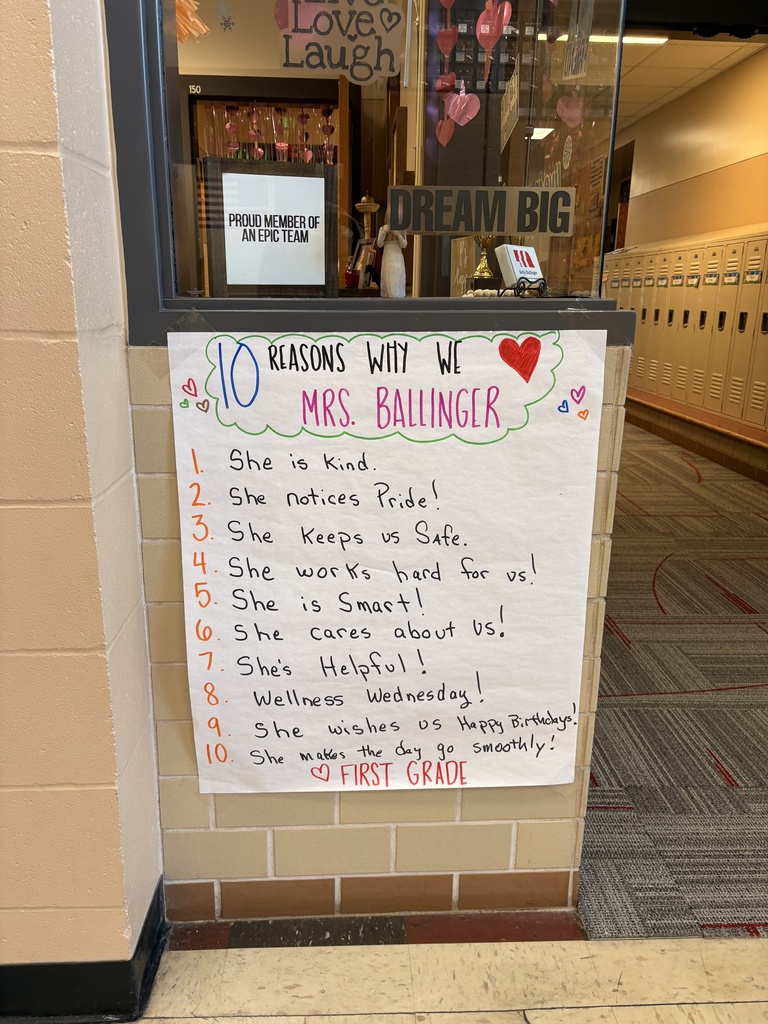 Live
Love
Laugh
150
PROUD MEMBER OF
AN EPIC TEAM
DREAM BIG
10 REASONS WHY WE
MRS. BALLINGER
1. She is Kind.
2. She notices Pride!
3. She keeps us Safe.
4. She works hard for us!
5. She is Smart!
6. She cares about us!
7. She's Helpful!
8. Wellness Wednesday!
9. She wishes us Happy Birthdays!
10. She makes the day go smoothly!
FIRST GRADE